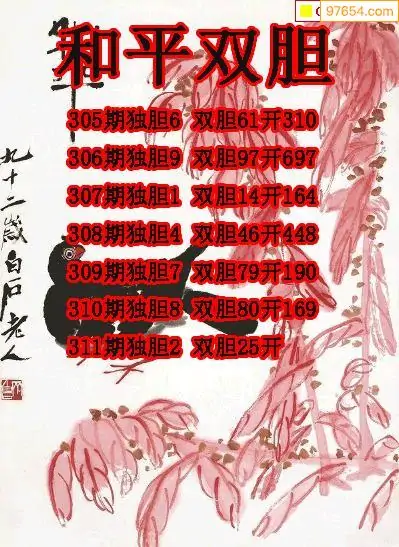 97654.com
和平双胆
305期独胆6 双胆61开310
306期独胆9 双胆97开697
307期独胆1 双胆14开164
308期独胆4 双胆46开448
309期独胆7 双胆79开190
310期独胆8 双胆80开169
311期独胆2 双胆25开
九十二岁白石老人